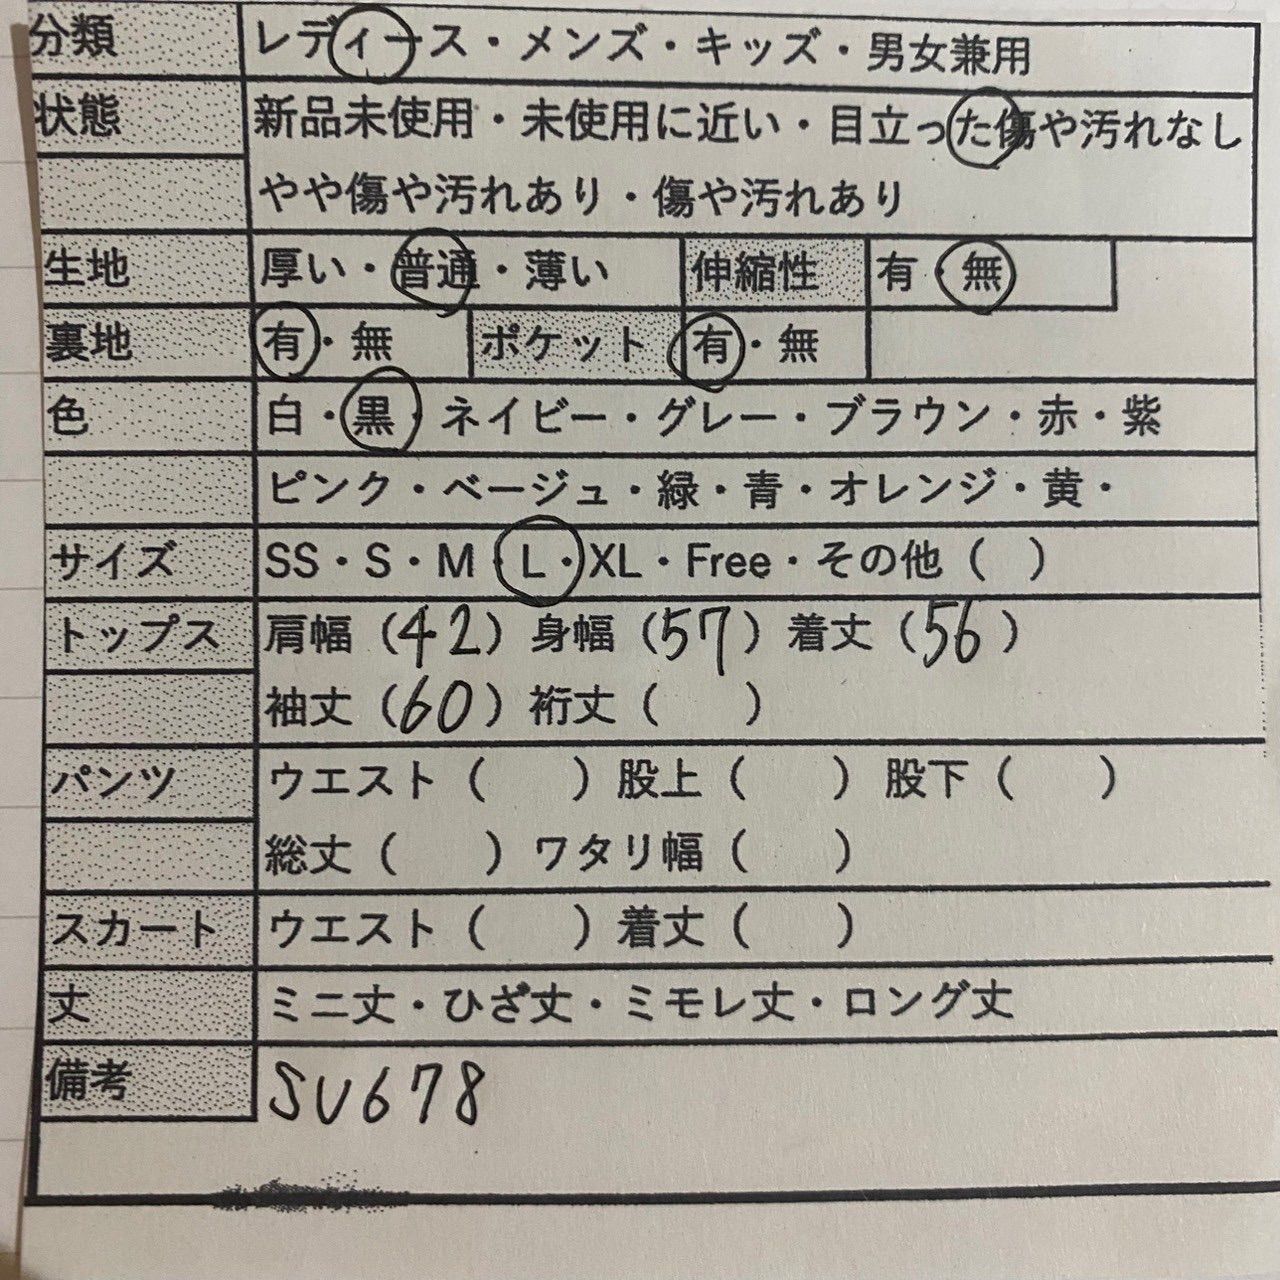 分類 レディース・メンズ・キッズ・男女兼用
状態 新品未使用・未使用に近い・目立った傷や汚れなし
やや傷や汚れあり・傷や汚れあり
生地 厚い・普通・薄い 伸縮性 有・無
裏地 有・無 ポケット 有・無
色 白・黒・ネイビー・グレー・ブラウン・赤・紫
ピンク・ベージュ・緑・青・オレンジ・黄・
サイズ SS・S・M・L・XL・Free・その他（ ）
トップス 肩幅（42）身幅（57）着丈（56）
袖丈（60）裄丈（ ）
パンツ ウエスト（ ）股上（ ）股下（ ）
総丈（ ）ワタリ幅（ ）
スカート ウエスト（ ）着丈（ ）
丈 ミニ丈・ひざ丈・ミモレ丈・ロング丈
備考 SU678